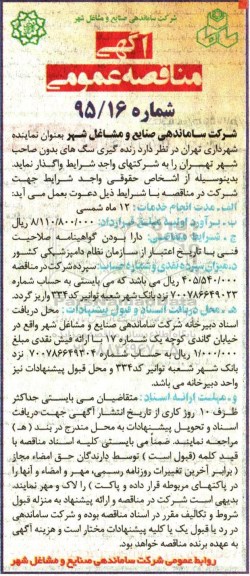 شرکت ساماندهی صنایع و مشاغل شهر
آگهی
مناقصه عمومی
شماره ۹۵/۱۶
شرکت ساماندهی صنایع و مشاغل شهر بعنوان نماینده
شهرداری تهران در نظر دارد زنده گیری سگ های بدون صاحب
شهر تهران را به شرکتهای واجد شرایط واگذار نماید.
بدینوسیله از اشخاص حقوقی واجد شرایط جهت
شرکت در مناقصه با شرایط ذیل دعوت بعمل می آید:
الف - مدت انجام خدمات: ۱۲ ماه شمسی
ب - برآورد اولیه مبلغ قرارداد: ۸/۱۱۰/۸۰۰/۰۰۰ ریال
ج - شرایط متقاضی: دارا بودن گواهینامه صلاحیت
فنی با تاریخ اعتبار از سازمان نظام دامپزشکی کشور
د - میزان سپرده نقدی و شماره حساب: سپرده شرکت در مناقصه
۴۰۵/۵۴۰/۰۰۰ ریال می باشد که می بایستی به حساب شماره
۷۰۰۷۸۶۶۴۹۰۲۳ نزد بانک شهر شعبه توانیر کد ۳۳۴ واریز گردد.
ه - محل دریافت اسناد و قبول پیشنهادات: محل دریافت
اسناد دبیرخانه شرکت ساماندهی صنایع و مشاغل شهر واقع در
خیابان گاندی کوچه یک شماره ۱۷ با ارائه فیش نقدی مبلغ
۱/۰۰۰/۰۰۰ ریال به حساب شماره ۷۰۰۷۸۶۶۴۹۳۰۴ نزد
بانک شهر شعبه توانیر کد ۳۳۴ و محل قبول پیشنهادات نیز
واحد دبیرخانه می باشد.
و - مهلت ارائه اسناد: متقاضیان می بایستی حداکثر
ظرف ۱۰ روز کاری از تاریخ انتشار آگهی جهت دریافت
اسناد و تحویل پیشنهادات به محل مندرج در بند (هـ)
مراجعه نمایند. ضمنا می بایستی کلیه اسناد مناقصه با
قید کلمه (قبول است) توسط دارندگان حق امضاء مجاز
(برابر آخرین تغییرات روزنامه رسمی، مهر و امضاء و آنها را
در پاکتهای مربوطه قرار داده و پاکت) را لاک و مهر نمایند.
بدیهی است شرکت در مناقصه و ارائه پیشنهاد به منزله قبول
شروط و تکالیف مقرر در اسناد مناقصه بوده و شرکت ساماندهی
در رد یا قبول یک یا کلیه پیشنهادات مختار است و هزینه آگهی
به عهده برنده مناقصه خواهد بود.
روابط عمومی شرکت ساماندهی صنایع و مشاغل شهر